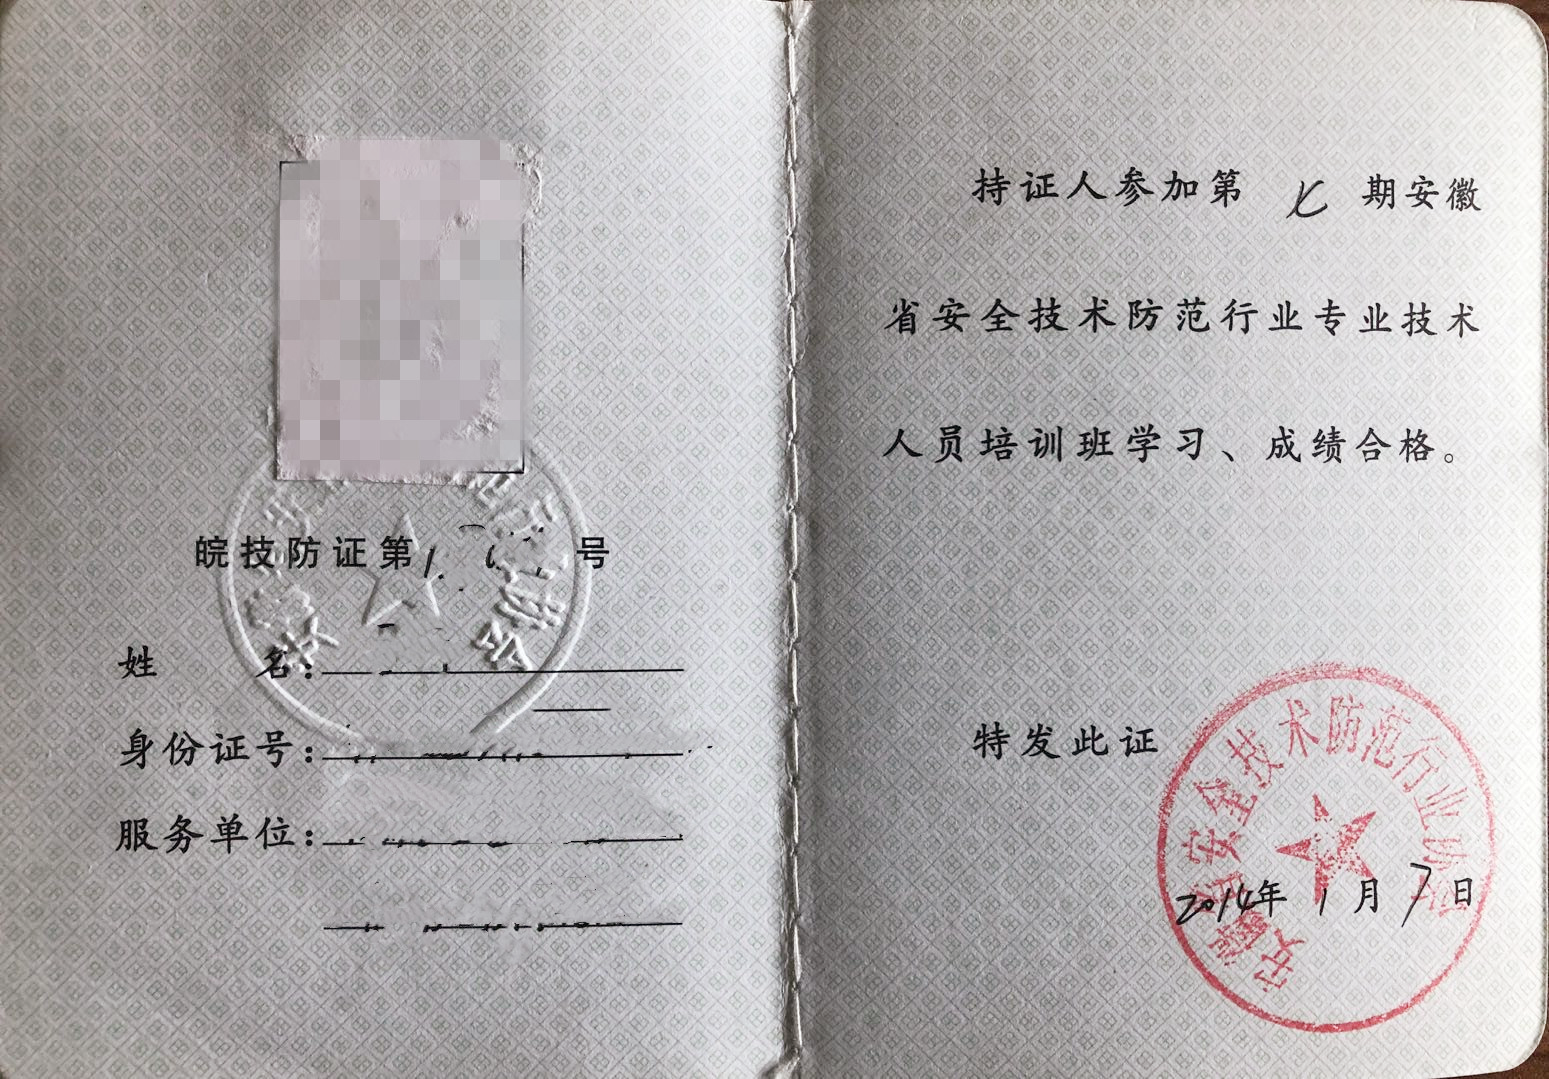 皖技防证第 号
姓 名：
身份证号：
服务单位：
持证人参加第 七 期安徽
省安全技术防范行业专业技术
人员培训班学习、成绩合格。
特发此证
安徽省安全技术防范行业协会
2014年 1 月 7 日